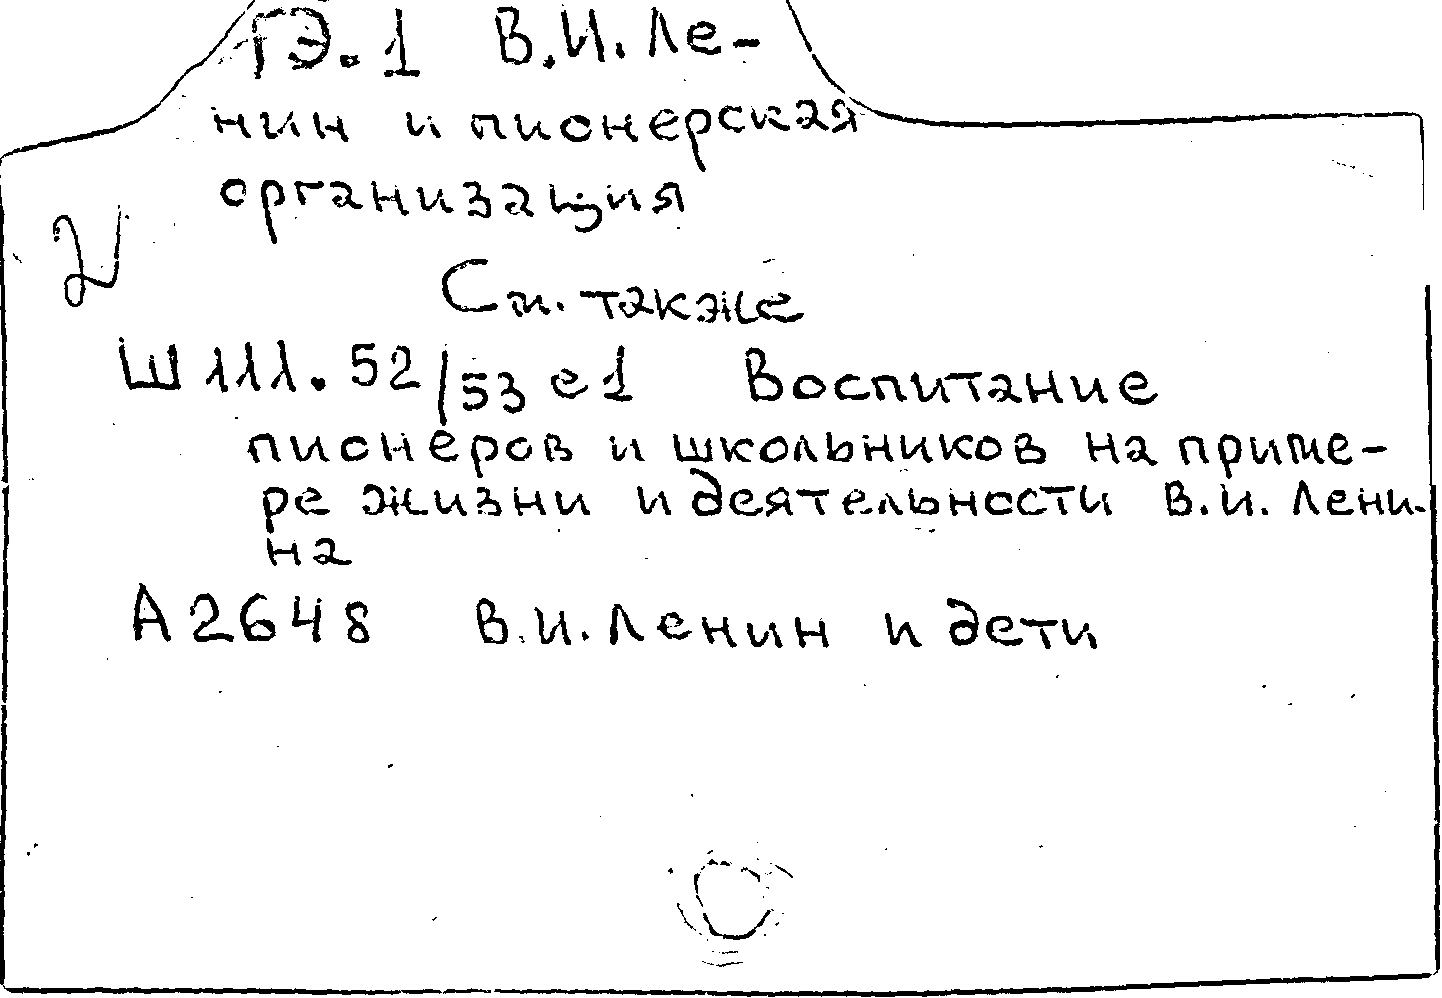 ГЭ.1 В.И. Ле-
нин и пионерская
организация
См. также
Ш111.52/53 е1 Воспитание
пионеров и школьников на приме-
ре жизни и деятельности В.И. Лени-
на
А2648 В.И. Ленин и дети